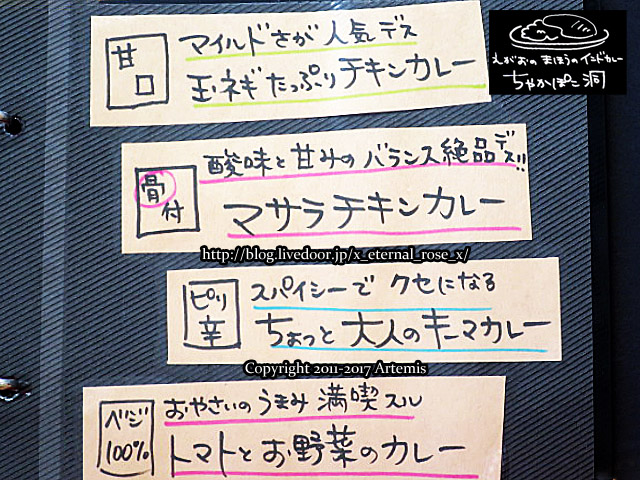 えがおのまほうのインドカレー
ちゃかぽこ洞
甘口
マイルドさが人気デス
玉ネギたっぷりチキンカレー
骨付
酸味と甘みのバランス絶品デス!!
マサラチキンカレー
http://blog.livedoor.jp/x_eternal_rose_x/
ピリ辛
スパイシーでクセになる
ちょっと大人のキーマカレー
Copyright 2011-2017 Artemis
ベジ
100%
おやさいのうまみ満喫スル
トマトとお野菜のカレー